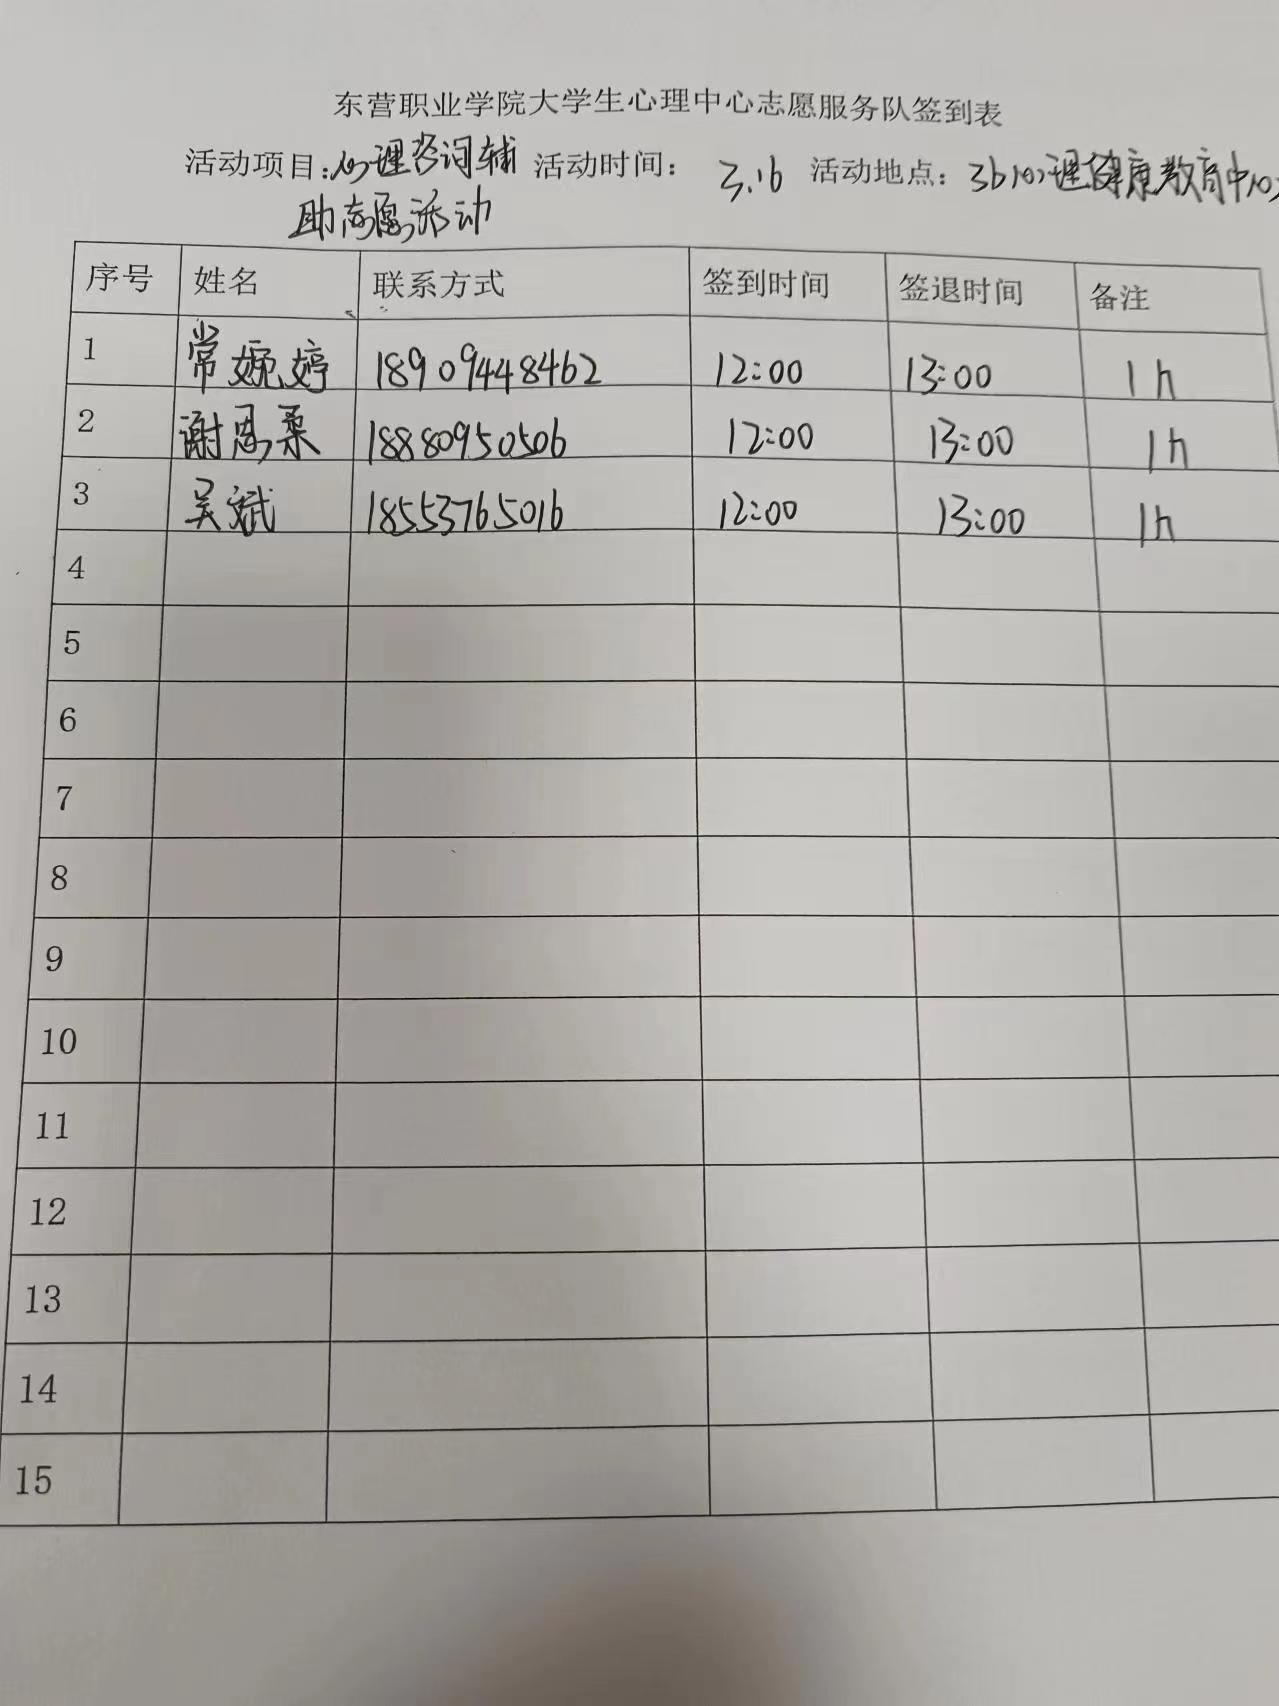 东营职业学院大学生心理中心志愿服务队签到表
活动项目:心理咨询辅 活动时间: 3.16 活动地点: 3b心理健康教育中心
助志愿活动
序号 姓名 联系方式 签到时间 签退时间 备注
1 常婉婷 18909448462 12:00 13:00 1h
2 谢思柔 18880950506 12:00 13:00 1h
3 吴斌 18553765016 12:00 13:00 1h
4
5
6
7
8
9
10
11
12
13
14
15